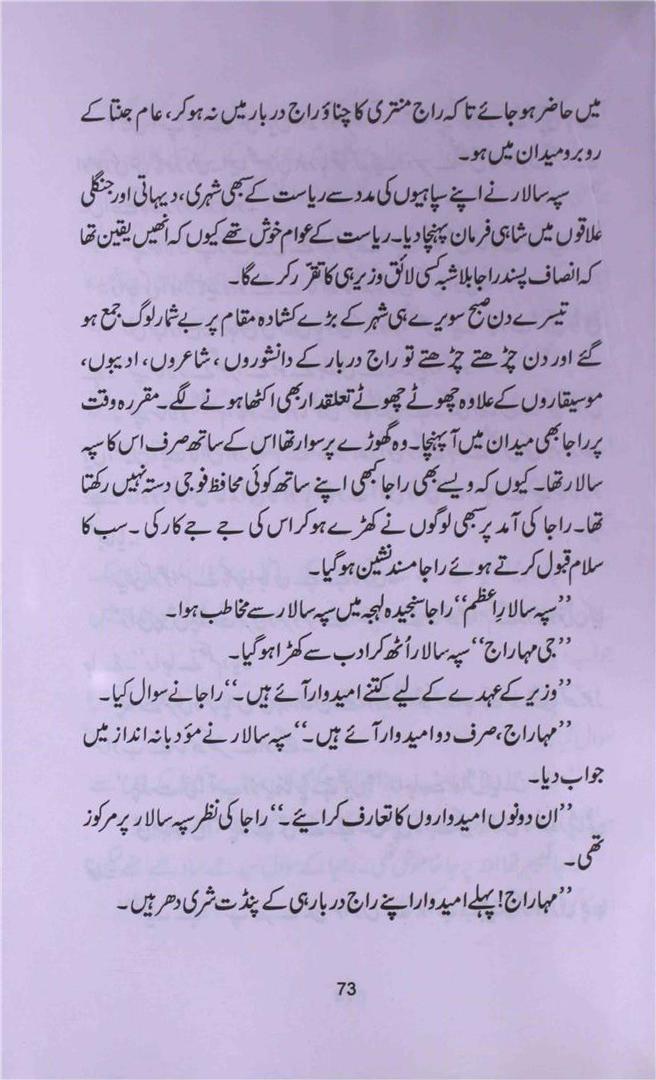 میں حاضر ہو جائے تاکہ راج منتری کا چناؤ راج دربار میں نہ ہو کر، عام جنتا کے
روبرو میدان میں ہو۔
سپہ سالار نے اپنے سپاہیوں کی مدد سے ریاست کے سبھی شہری، دیہاتی اور جنگلی
علاقوں میں شاہی فرمان پہنچا دیا۔ ریاست کے عوام خوش تھے کیوں کہ انھیں یقین تھا
کہ انصاف پسند راجا بلا شبہ کسی لائق وزیر ہی کا تقرّر کرے گا۔
تیسرے دن صبح سویرے ہی شہر کے بڑے کشادہ مقام پر بے شمار لوگ جمع ہو
گئے اور دن چڑھتے چڑھتے تو راج دربار کے دانشوروں، شاعروں، ادیبوں،
موسیقاروں کے علاوہ چھوٹے چھوٹے تعلقدار بھی اکٹھا ہونے لگے۔ مقررہ وقت
پر راجا بھی میدان میں آ پہنچا۔ وہ گھوڑے پر سوار تھا اس کے ساتھ صرف اس کا سپہ
سالار تھا۔ کیوں کہ ویسے بھی راجا کبھی اپنے ساتھ کوئی محافظ فوجی دستہ نہیں رکھتا
تھا۔ راجا کی آمد پر سبھی لوگوں نے کھڑے ہو کر اس کی جے جے کار کی۔ سب کا
سلام قبول کرتے ہوئے راجا مسند نشین ہو گیا۔
”سپہ سالارِ اعظم“ راجا سنجیدہ لہجہ میں سپہ سالار سے مخاطب ہوا۔
”جی مہاراج“ سپہ سالار اُٹھ کر ادب سے کھڑا ہو گیا۔
”وزیر کے عہدے کے لیے کتنے امیدوار آئے ہیں۔“ راجا نے سوال کیا۔
”مہاراج، صرف دو امیدوار آئے ہیں۔“ سپہ سالار نے مؤدبانہ انداز میں
جواب دیا۔
”ان دونوں امیدواروں کا تعارف کرائیے۔“ راجا کی نظر سپہ سالار پر مرکوز
تھی۔
”مہاراج! پہلے امیدوار اپنے راج دربار ہی کے پنڈت شری دھر ہیں۔
73